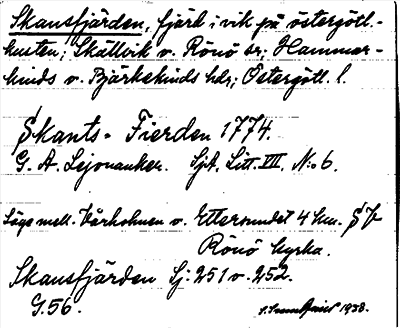 Skansfjärden, fjärd i vik på östergötl.-
kusten; Skällvik o. Rönö sr; Hammar-
kinds o. Björkekinds hdr; Östergötl. l.
Skants-Fierden 1774.
G. A. Lejonanker. Sjk. Litt. VII, No 6.
Läge mell. Vårholmen o. Ettersundet 4 km. SV
Rönö kyrka.
Skansfjärden Sj: 251 o. 252.
G.56. 1938.